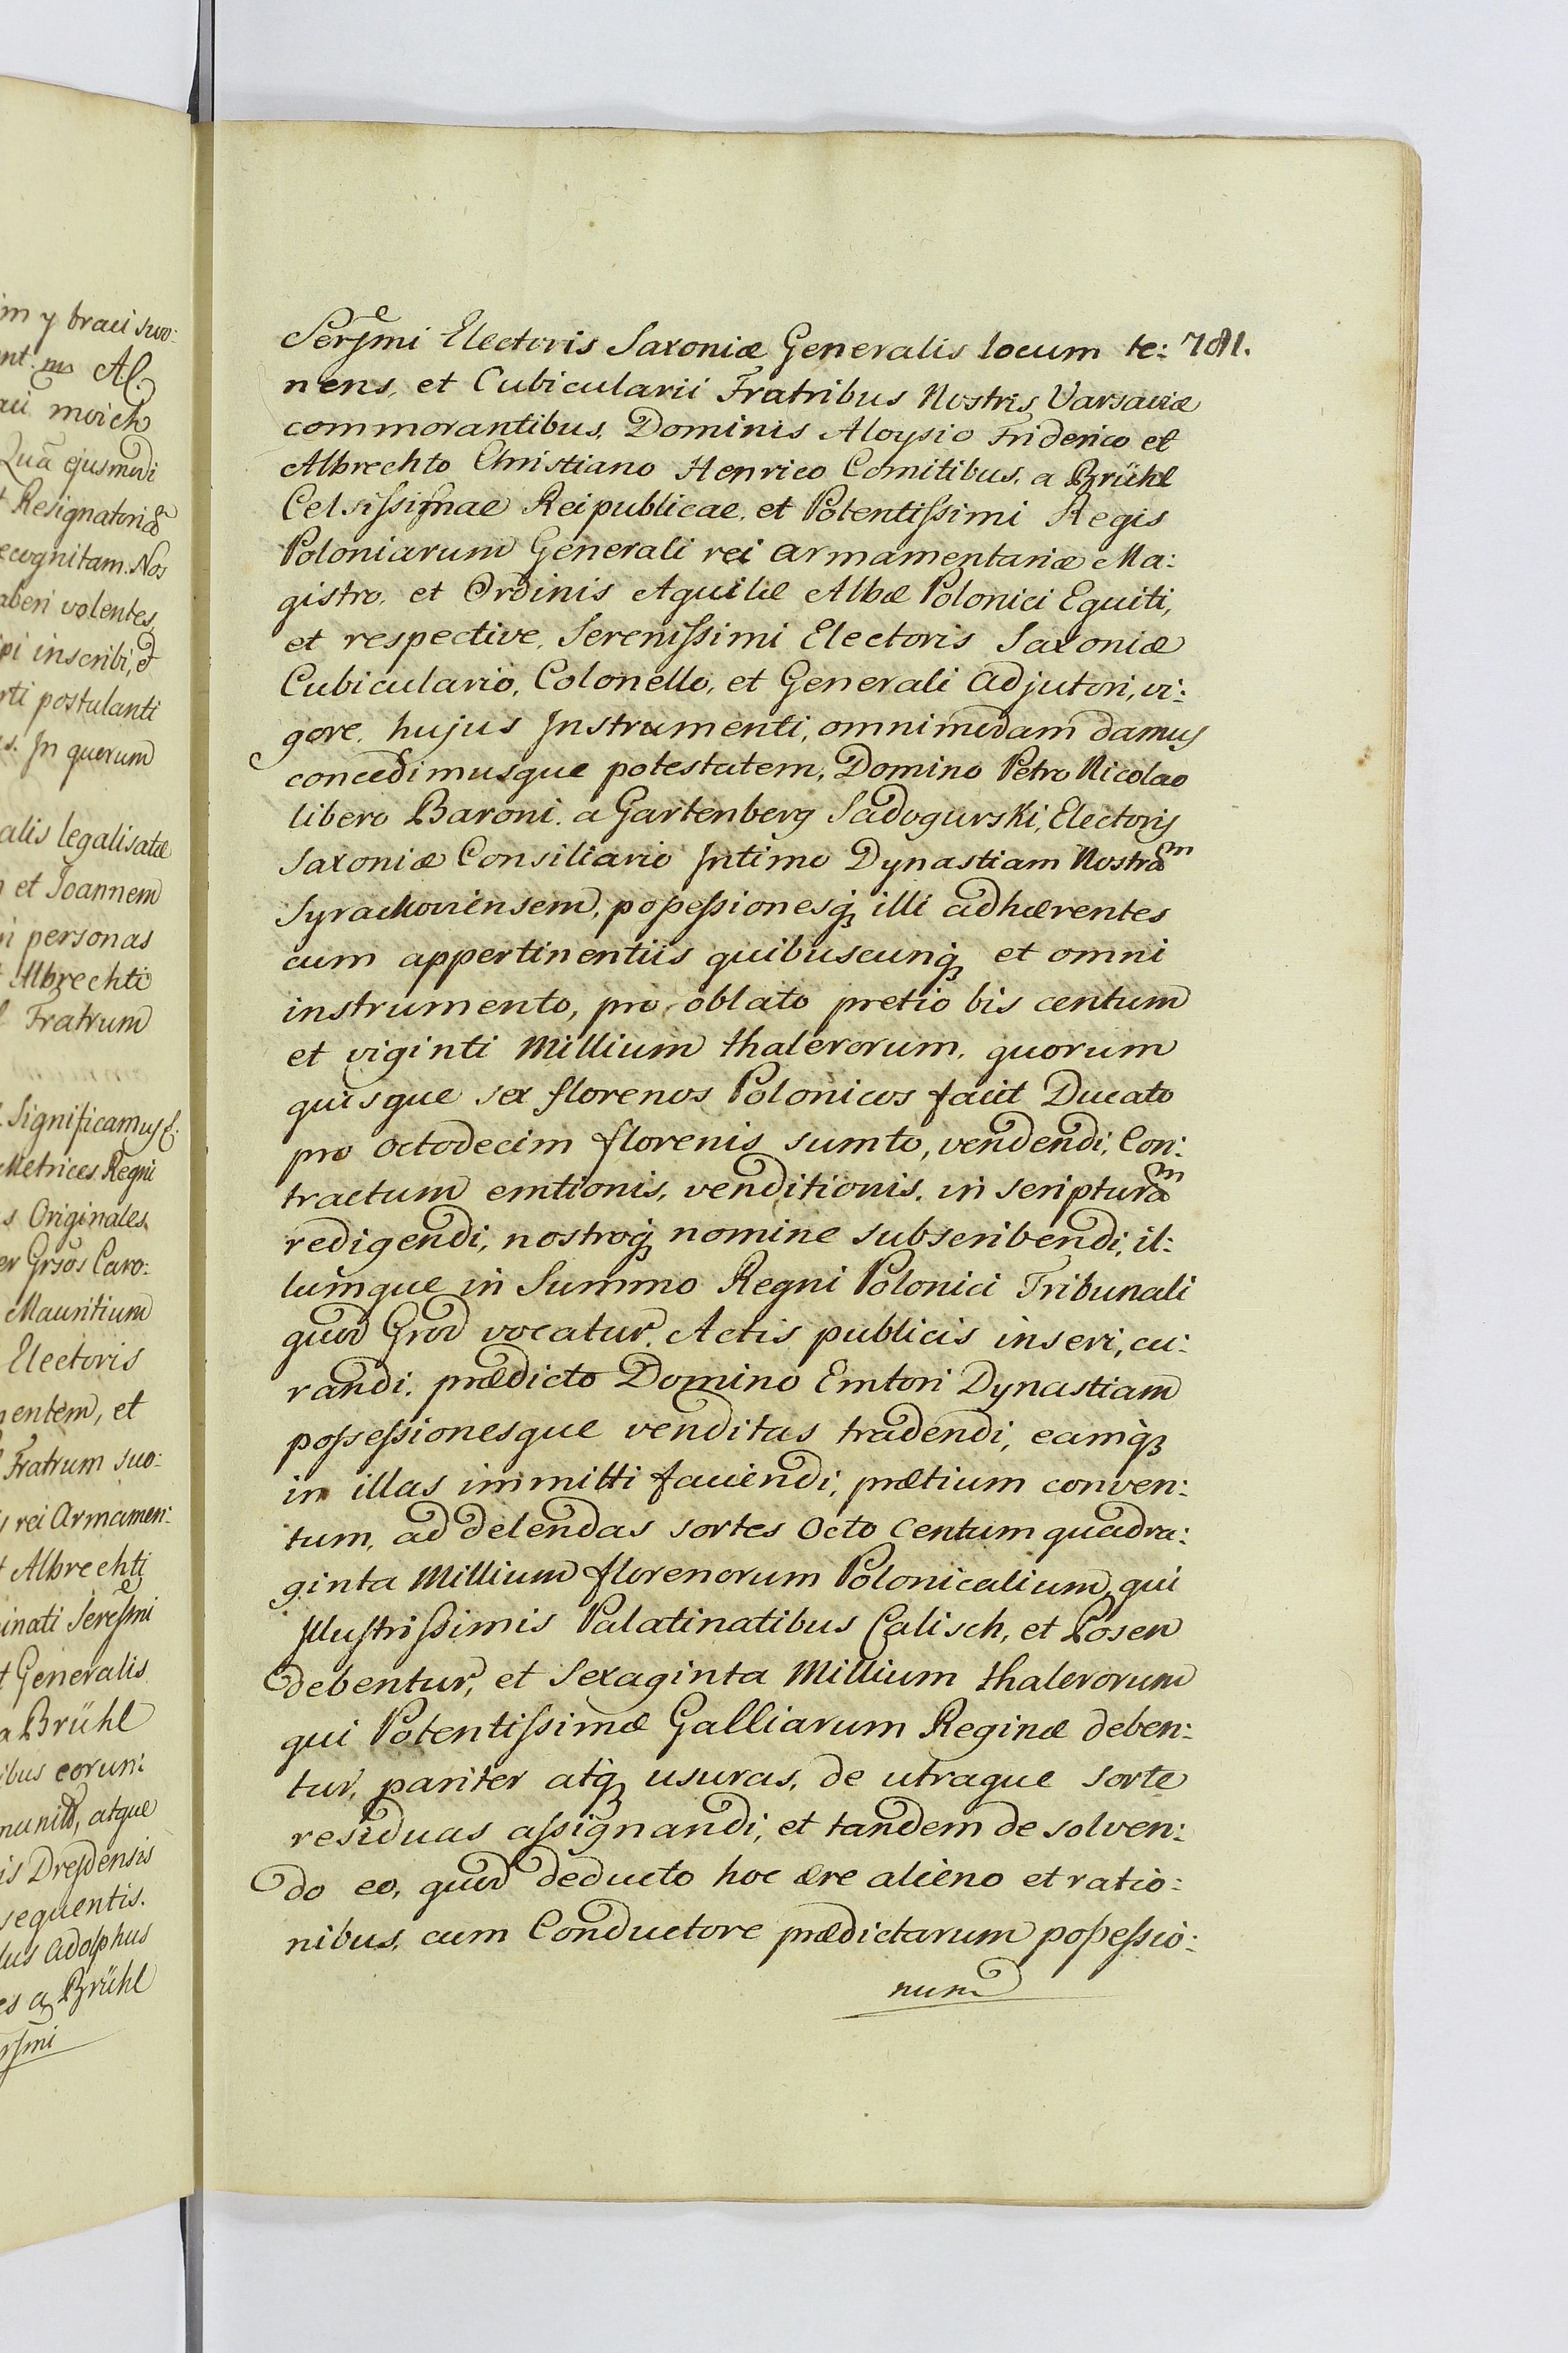 in y braci swo:
Al.
moich
Quã ejusmodi
Resignatoriæ
ecognitam. Nos
aberi volentes,
pi inscribi, et
rti postulanti
s. In quorum
alis legalisatæ
et Joannem
ri personas
Albrechti
Fratrum
Significamus
Metrices Regni
s Originales
er Grsos Caro:
Mauritium
Electoris
nentem, et
Fratrum suo:
rei Armamen:
Albrechti
inati Seresmi
t Generalis
a Brühl
ibus eorun:
munito, atque
is Dresdensis
sequentis.
lus Adolphus
es a Brühl
rsmi
Sersmi Electoris Saxoniæ Generalis locum te: 781.
nens, et Cubicularii Fratribus Nostris Varsaviæ
commorantibus, Dominis Aloysio Friderico et
Albrechto Christiano Henrico Comitibus, a Brühl
Celsissimae Reipublicae, et Potentissimi Regis
Poloniarum Generali rei armamentariæ Ma:
gistro, et Ordinis Aquilæ Albæ Polonici Equiti,
et respective, Serenissimi Electoris Saxoniæ
Cubiculario, Colonello, et Generali Adjutori, vi:
gore, hujus Instrumenti, omnimodam damus
concedimusque potestatem, Domino Petro Nicolao
libero Baroni, a Gartenberg Sadogurski, Electoris
Saxoniæ Consiliario Intimo Dynastiam Nostram
Syrackoviensem, possessionesq3 illi adhærentes
cum appertinentiis quibuscunq3 et omni
instrumento, pro oblato pretio bis centum
et viginti Millium thalerorum, quorum
quisque sex florenos Polonicos facit Ducato
pro octodecim florenis sumto, vendendi, Con:
tractum emtionis, venditionis, in scripturam
redigendi, nostroq3 nomine subscribendi, il:
lumque in Summo Regni Polonici Tribunali
quod Grod vocatur, Actis publicis inseri, cu:
randi, prædicto Domino Emtori Dynastiam
possessionesque venditas tradendi, eamq3
in illas immitti faciendi, prætium conven:
tum, ad delendas sortes Octo Centum quadra:
ginta Millium florenorum Polonicalium, qui
Illustrissimis Palatinatibus Calisch, et Posen
debentur, et Sexaginta Millium thalerorum
qui Potentissimæ Galliarum Reginæ deben:
tur, pariter atq3 usuras, de utraque sorte
residuas assignandi, et tandem de solven:
do eo, quod deducto hoc ære alieno et ratio:
nibus, cum Conductore prædictarum possessio:
num